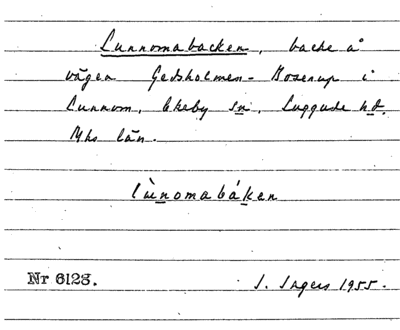 Lunnomabacken, backe å
vägen Gedsholmen - Boserup i
Lunnom, Ekeby sn, Luggude hd.
Mhs län.
lùnomabáken
Nr 6128.
I. Ingers 1955.